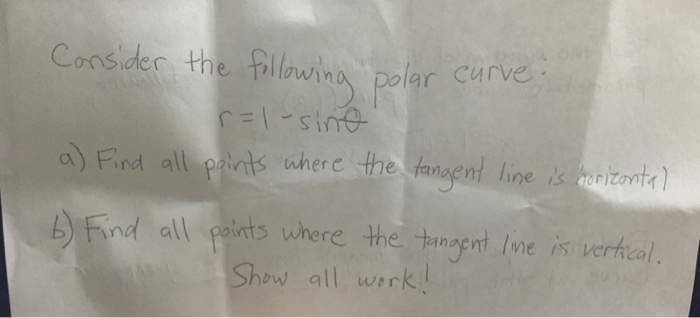 Consider the following polar curve:
r=1-sinθ
a) Find all points where the tangent line is horizontal
b) Find all points where the tangent line is vertical.
Show all work!